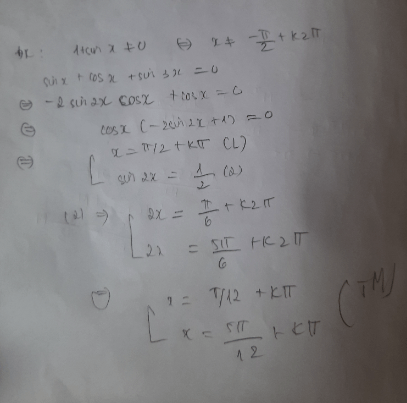 ĐK: 1+sin x ≠ 0 (=) x ≠ -π/2 + k2π
sin x + cos x + sin 3x = 0
(=) -2 sin 2x cos x + cos x = 0
(=) cos x (-2 sin 2x + 1) = 0
(=) [ x = π/2 + kπ (L)
sin 2x = 1/2 (2)
(2) => [ 2x = π/6 + k2π
2x = 5π/6 + k2π
(=) [ x = π/12 + kπ
x = 5π/12 + kπ (TM)